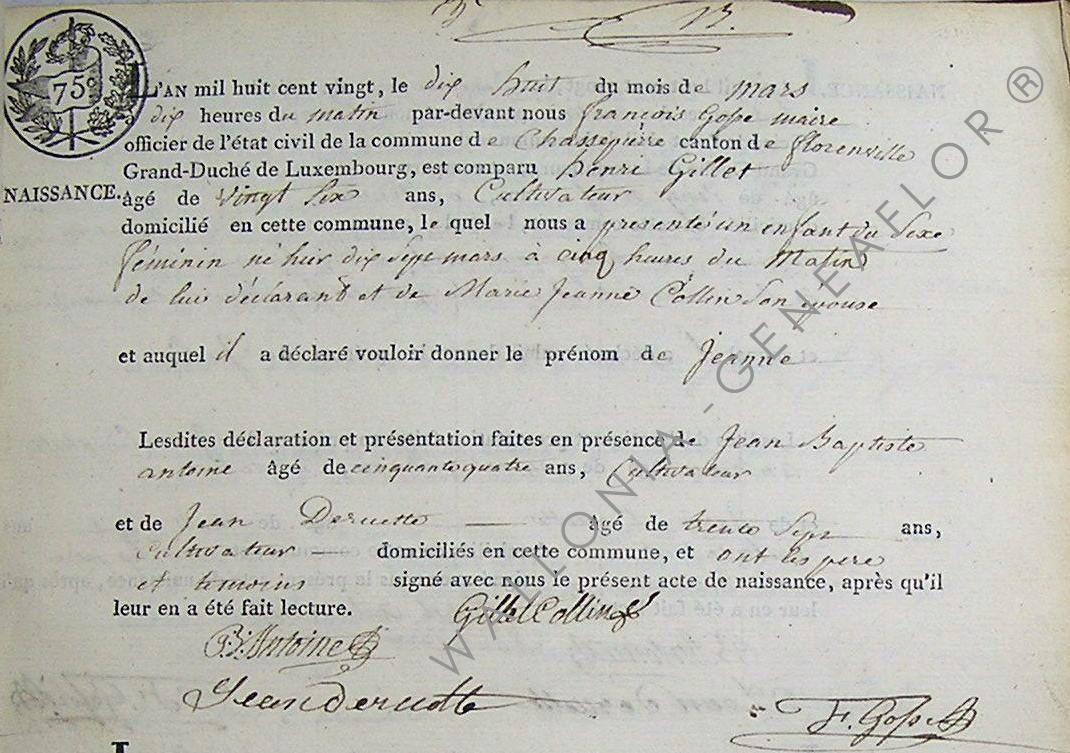 13.
75c
L'AN mil huit cent vingt, le dix huit du mois de mars
à dix heures du matin par-devant nous françois Gosse maire
officier de l'état civil de la commune de Chassepierre canton de florenville
Grand-Duché de Luxembourg, est comparu henri Gillet
NAISSANCE. âgé de vingt six ans, Cultivateur
domicilié en cette commune, le quel nous a presenté un enfant du Sexe
féminin né hier dix sept mars à cinq heures du Matin
de lui déclarant et de Marie Jeanne Collin Son epouse
et auquel il a déclaré vouloir donner le prénom de Jeanne
Lesdites déclaration et présentation faites en présence de Jean Baptiste
antoine âgé de cinquante quatre ans, Cultivateur
et de Jean Deruette — âgé de trente Sept ans,
Cultivateur — domiciliés en cette commune, et ont les pere
et temoins signé avec nous le présent acte de naissance, après qu'il
leur en a été fait lecture. Gillet Collin
B: Antoine
Jean deruette
F. Gosse
WALLONIA-GENEAFLOR ®